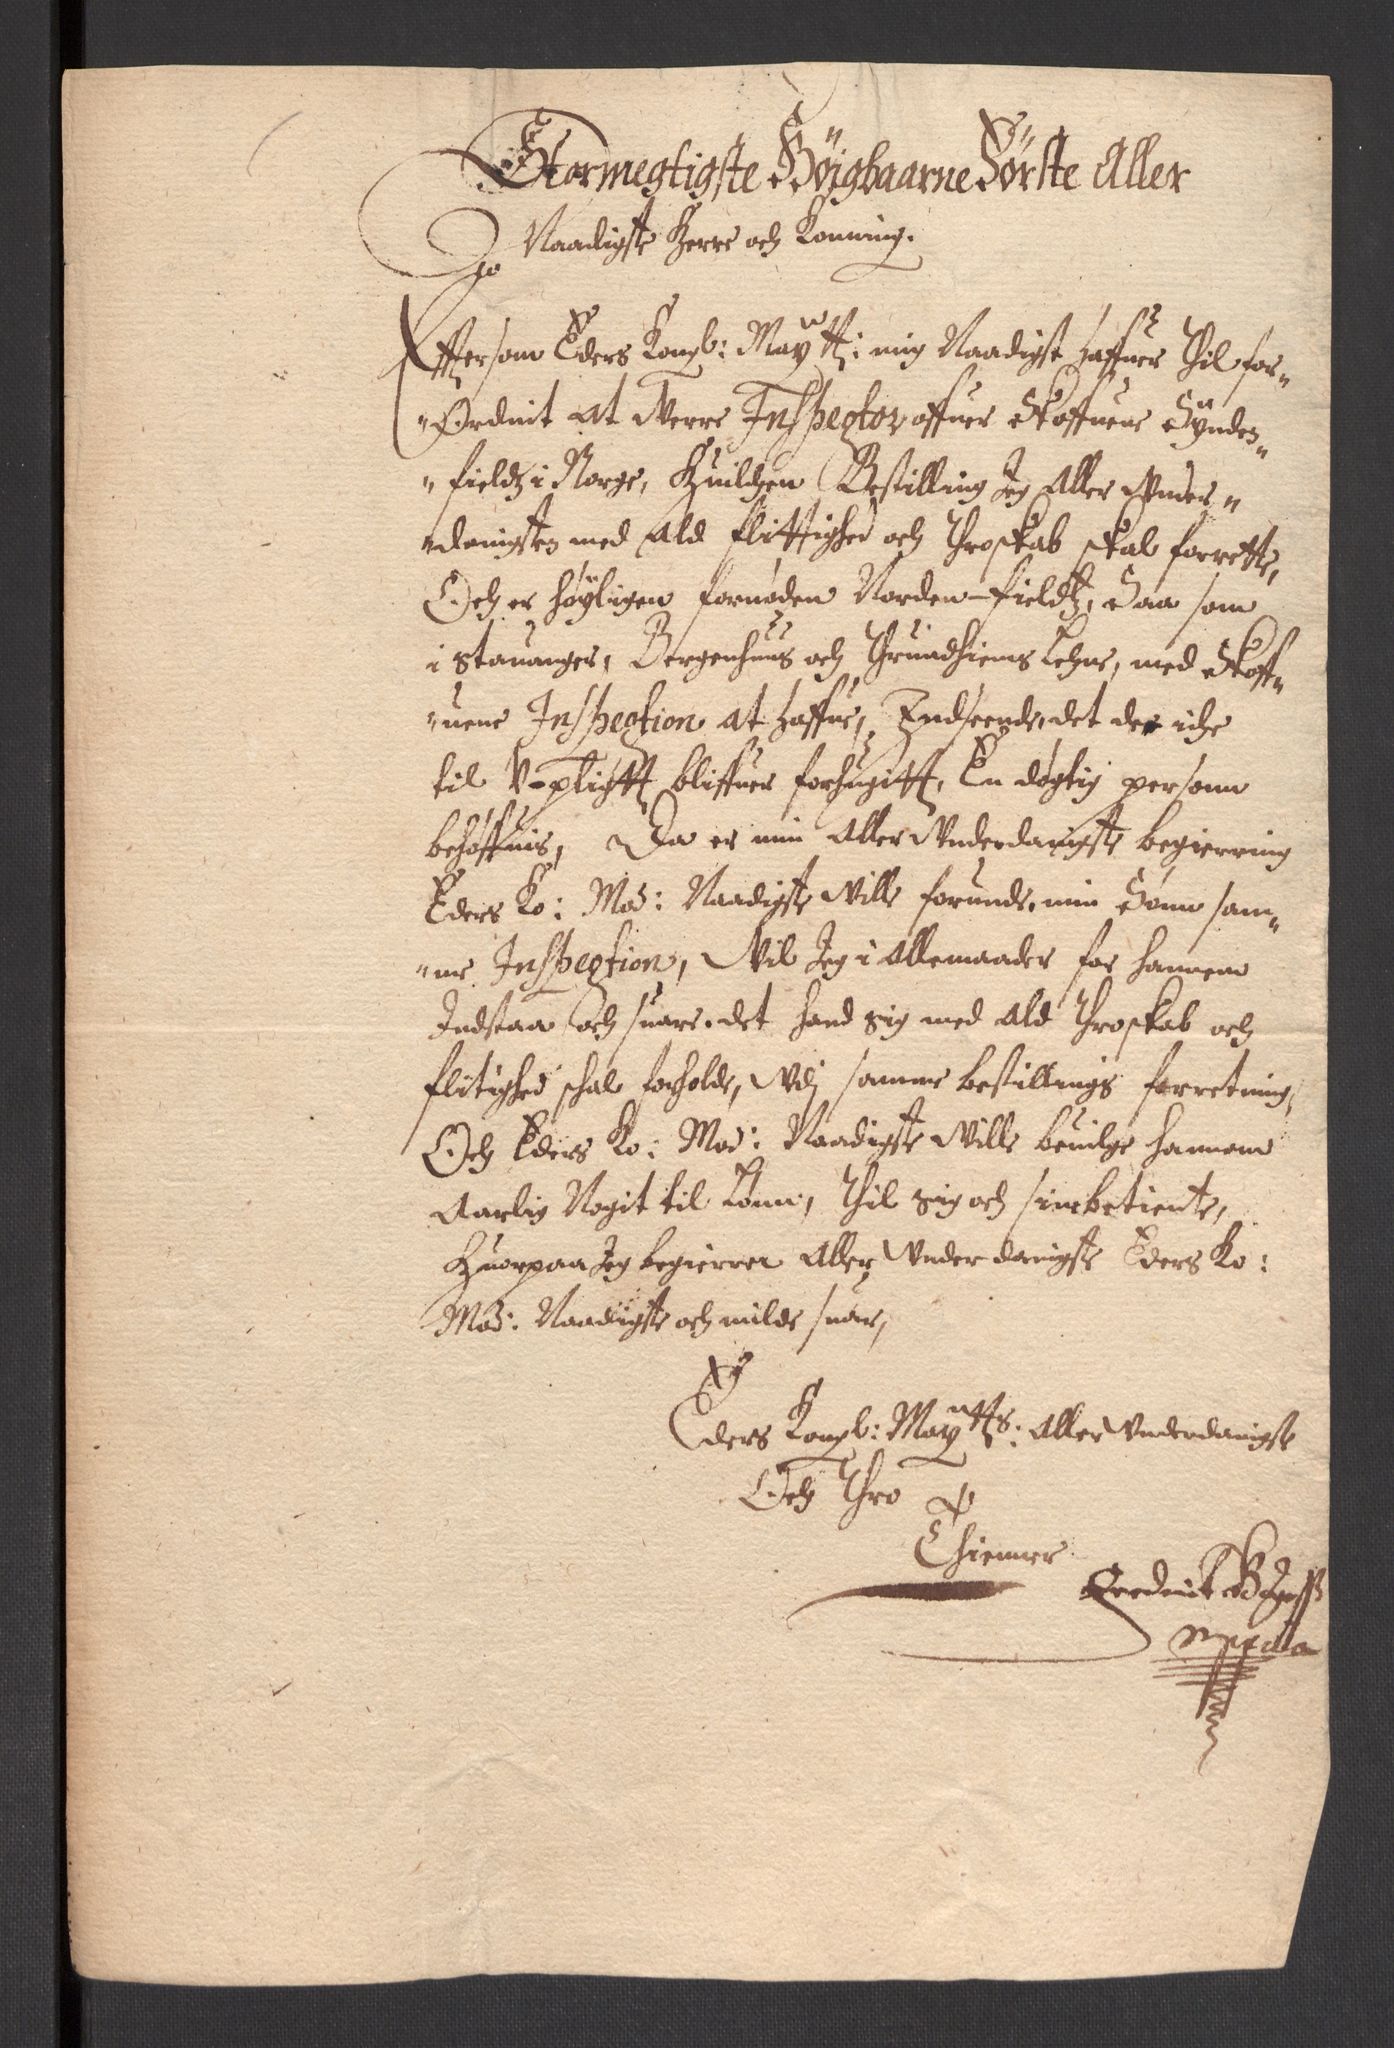 Stormegtigste Høigbaarne Første Aller
Naadigste Herre och Konning.
Effttersom Eders Kongl: Maytt: mig Naadigst haffuer Thil for-
Ordnit at Werre Inspector offuer Skoffuene Synden-
fieldz i Norge, Huilchen Bestilling Jeg Aller Under-
danigsten med Ald flittighed och Throskab skal forrette,
Och er høyligen fornøden Norden-fieldz, Saa som
i Stauanger, Bergenhuus och Thrundhiems Lehne, med Skoff-
uene Inspection at haffue, Endseende, det de iche
til V-pligtt bliffuer forhugitt, En døgtig persoun
behøffuis, Da er min Aller Vnderdanigste begierring
Eders Ko: May: Naadigste Wille forunde, min Sønn sam-
me Inspection, Wil Jeg i Allemaader for hannem
Indstaa och suare, det hand sig med Ald Throskab och
flitighed schal forholde, Wdj samme bestillings forretning,
Och Eders Ko: May: Naadigste Wille beuilge hannom
Aarlig Nogit til Lønn, Thil sig och sin betiente,
Huorpaa Jeg begierrer Aller Vnderdanigste Eders Ko:
May: Naadigste och milde suar,
Eders Kongl: Maytts: Aller Vnderdanigste
Och Thro
Thienner
Fredrick
mppria